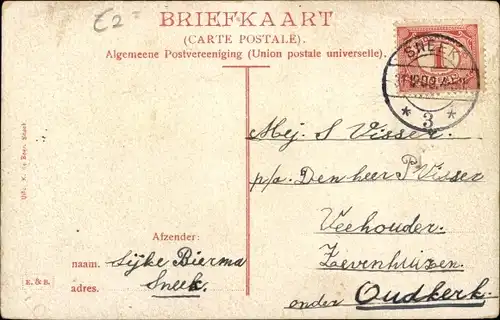 £2=
BRIEFKAART
(CARTE POSTALE).
Algemeene Postvereeniging (Union postale universelle).
SNEEK
3
Mej. S Visser.
p/a. Den heer P. Visser
Veehouder
Zevenhuizen.
onder Oudkerk.
Afzender:
naam. Sijke Bierma
adres. Sneek.
E. & B.